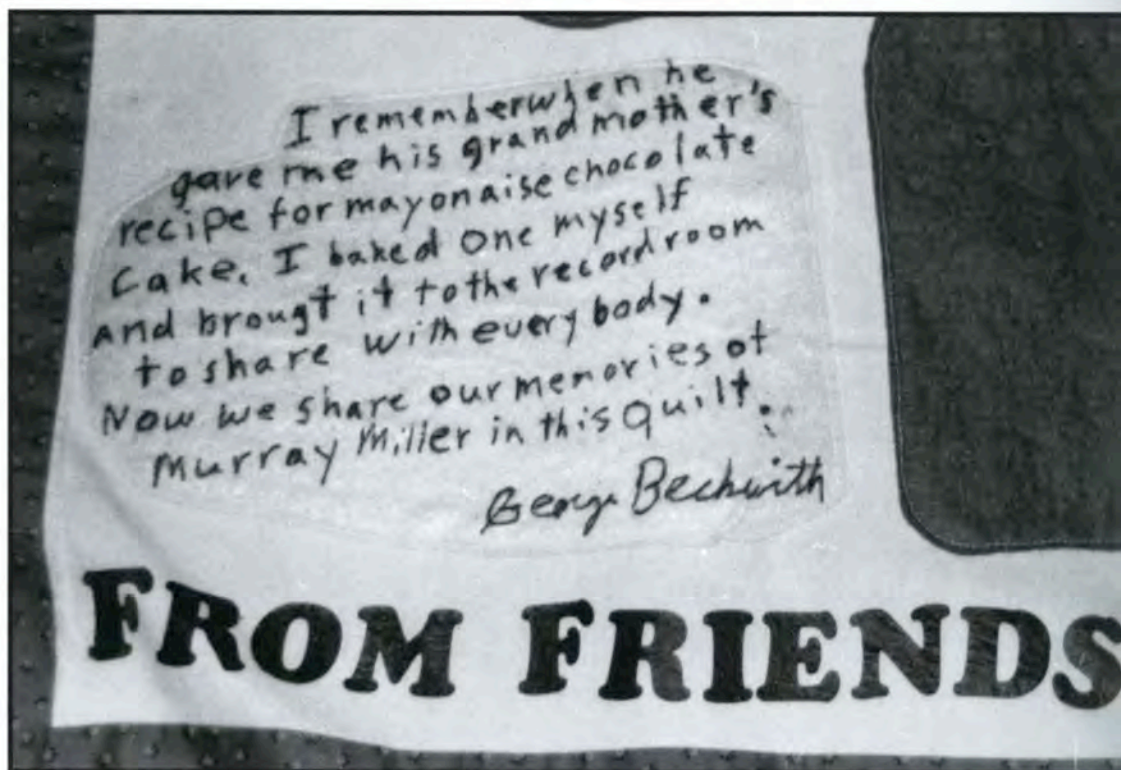 I remember when he
gave me his grandmother's
recipe for mayonaise chocolate
Cake. I baked one myself
and brougt it to the record room
to share with every body.
Now we share our memories of
Murray Miller in this Quilt.
George Beckwith
FROM FRIENDS